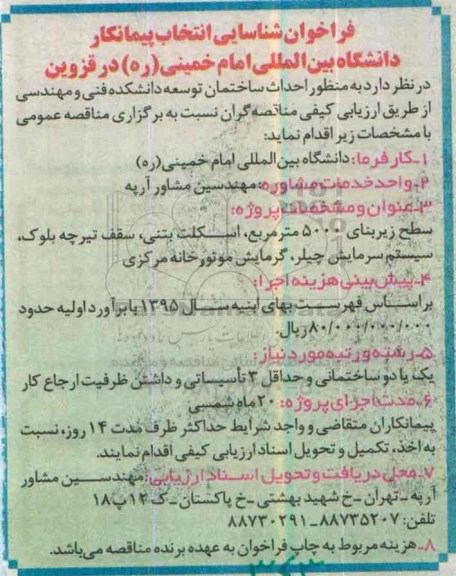 فراخوان شناسایی انتخاب پیمانکار
دانشگاه بین المللی امام خمینی (ره) در قزوین
در نظر دارد به منظور احداث ساختمان توسعه دانشکده فنی و مهندسی
از طریق ارزیابی کیفی مناقصه گران نسبت به برگزاری مناقصه عمومی
با مشخصات زیر اقدام نماید:
۱-کارفرما: دانشگاه بین المللی امام خمینی (ره)
۲-واحد خدمات مشاوره: مهندسین مشاور آرپه
۳-عنوان و مشخصات پروژه:
سطح زیربنای ۵۰۰۰ مترمربع، اسکلت بتنی، سقف تیرچه بلوک،
سیستم سرمایش چیلر، گرمایش موتورخانه مرکزی
۴-پیش بینی هزینه اجرا:
براساس فهرست بهای ابنیه سال ۱۳۹۵ با برآورد اولیه حدود
۸۰/۰۰۰/۰۰۰/۰۰۰ ریال.
۵-رشته و رتبه مورد نیاز:
یک یا دو ساختمانی و حداقل ۳ تأسیساتی و داشتن ظرفیت ارجاع کار
۶-مدت اجرای پروژه: ۲۰ ماه شمسی
پیمانکاران متقاضی و واجد شرایط حداکثر ظرف مدت ۱۴ روز، نسبت
به اخذ، تکمیل و تحویل اسناد ارزیابی کیفی اقدام نمایند.
۷-محل دریافت و تحویل اسناد ارزیابی: مهندسین مشاور
آرپه - تهران - خ شهید بهشتی - خ پاکستان - ک ۱۲ پ ۱۸
تلفن: ۸۸۷۳۵۲۰۷ - ۸۸۷۳۰۲۹۱
۸- هزینه مربوط به چاپ فراخوان به عهده برنده مناقصه می باشد.